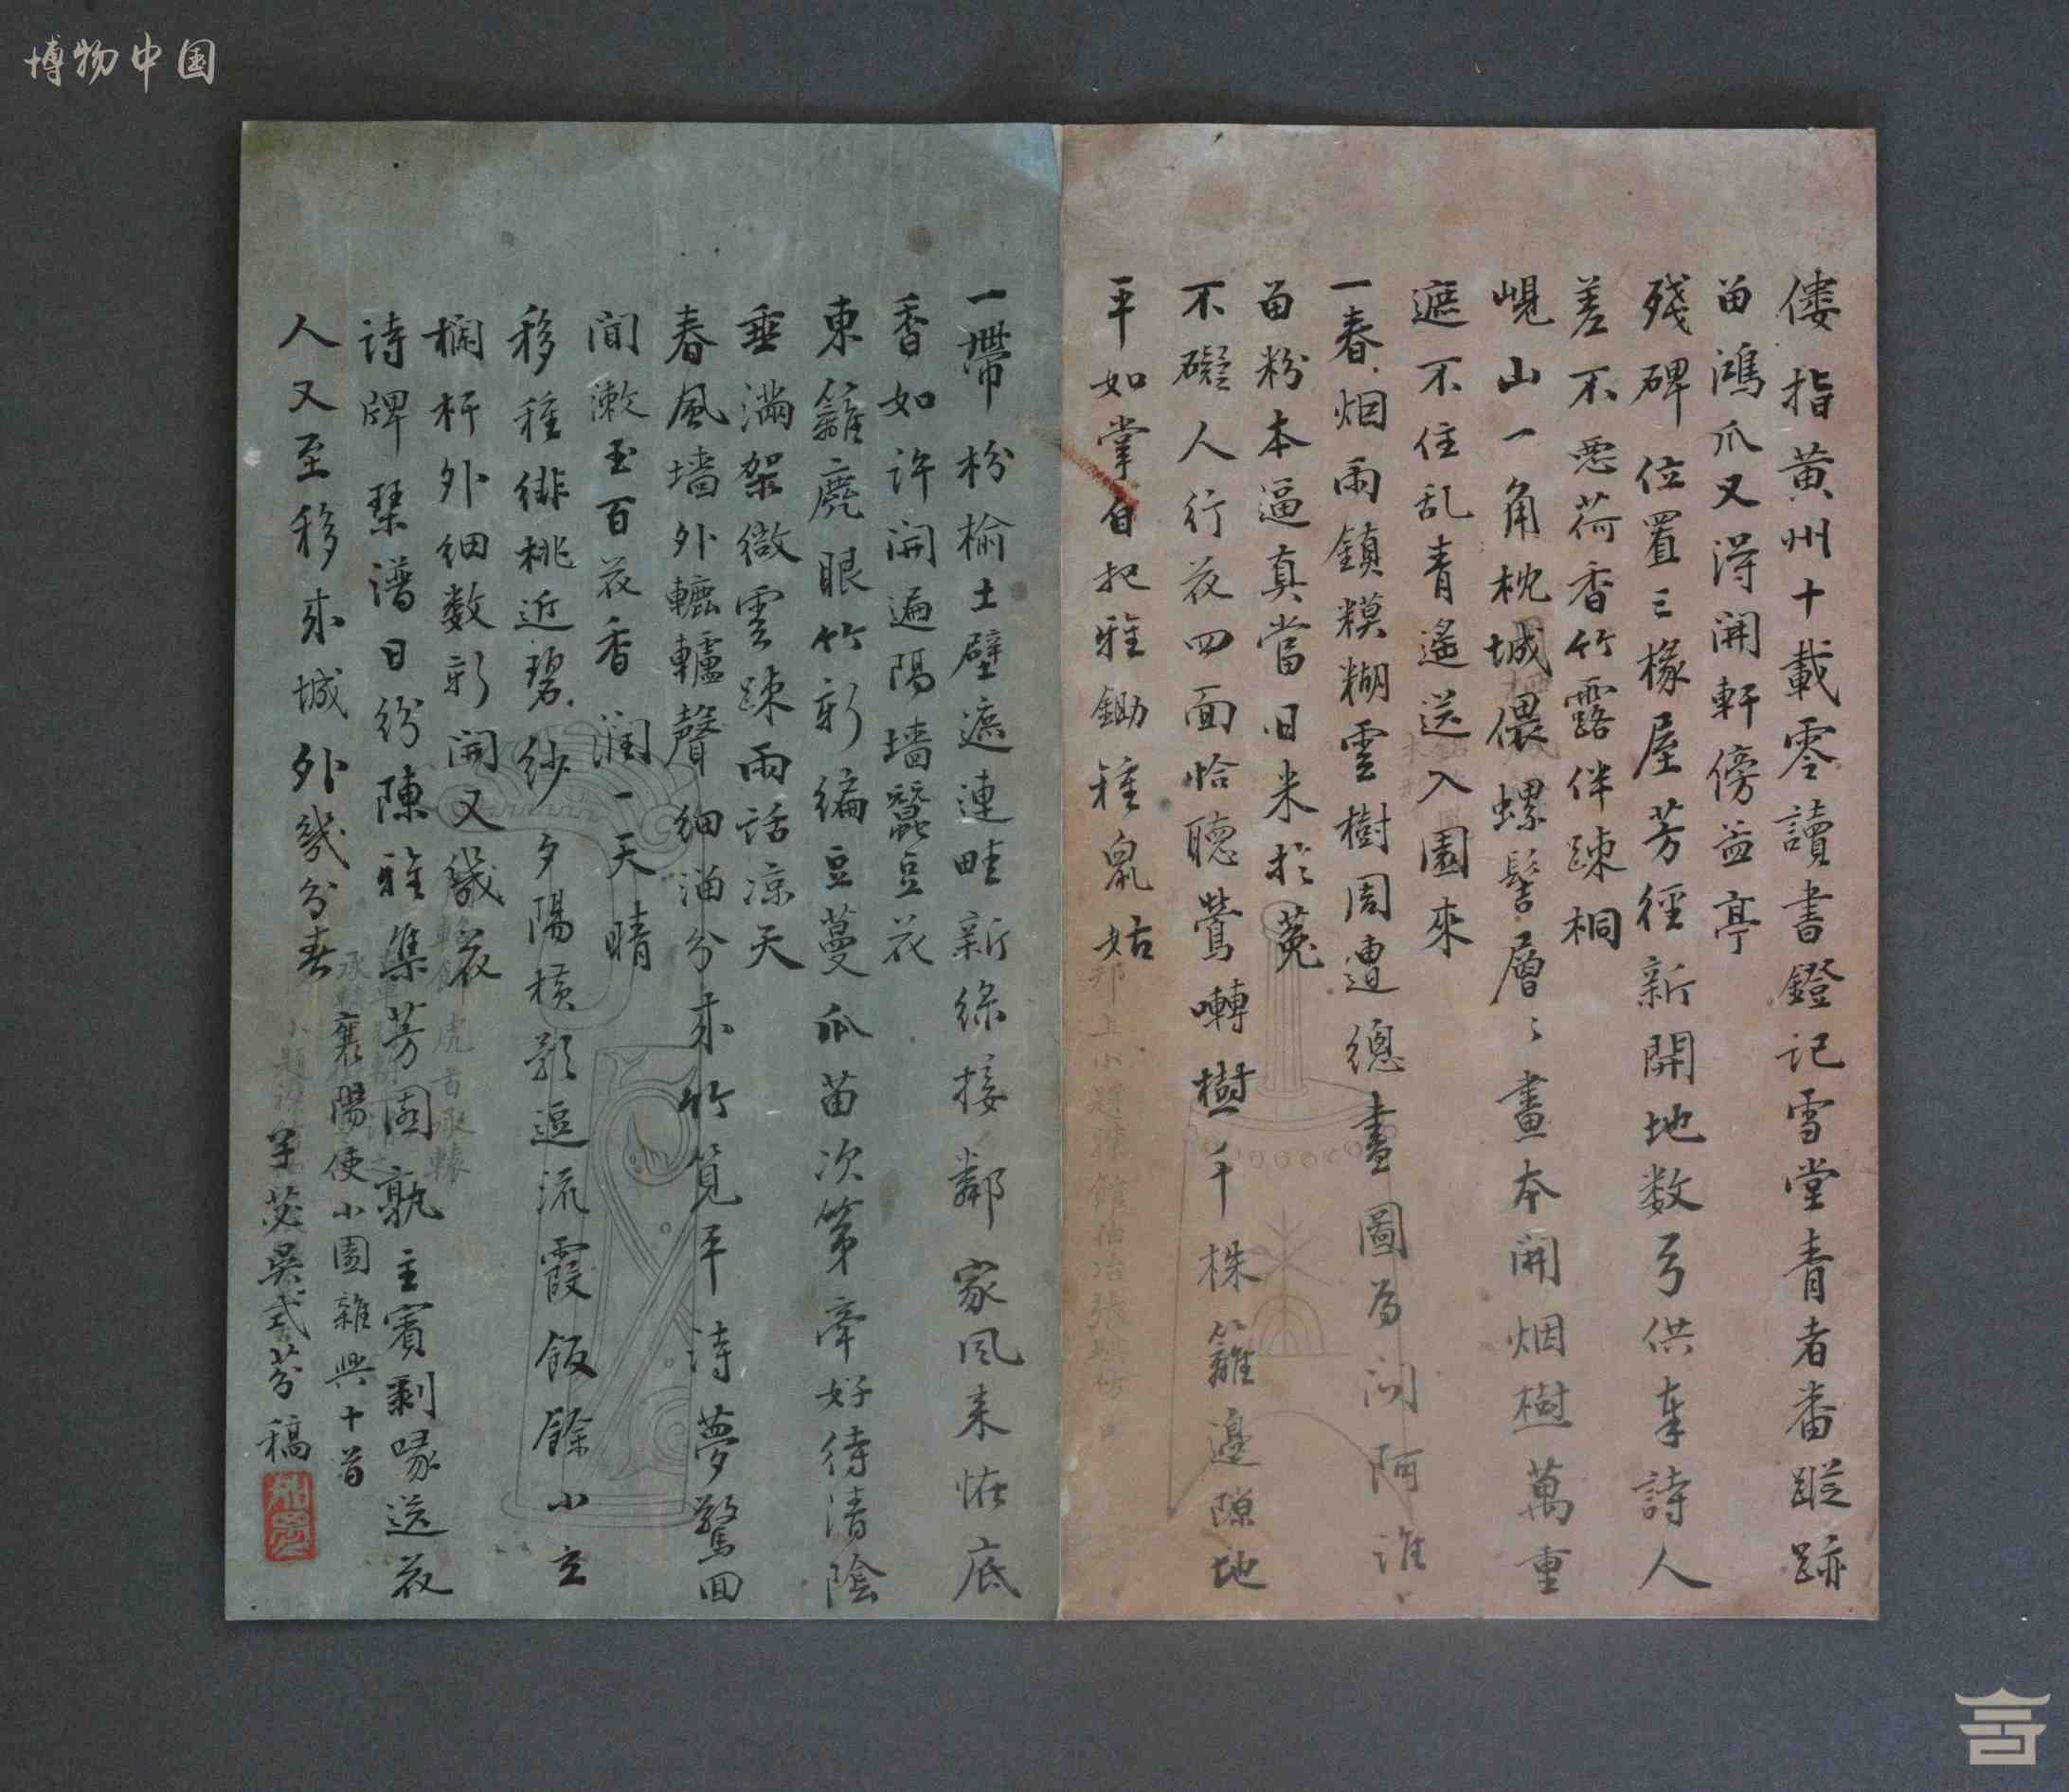 博物中国
偻指黄州十載零讀書鐙記雪堂青者番蹤跡
留鴻爪又得開軒傍蓋亭
殘碑位置三椽屋芳徑新開地数弓供奉詩人
差不惡荷香竹露伴踈桐
峴山一角枕城偎螺髻層〻畫本開烟樹萬重
遮不住乱青遙送入園來
一春烟雨鎮糢糊雲樹周遭總畫圖為問阿誰
留粉本逼真當日米於菟
不礙人行花四面恰聽鶯囀樹千株籬邊隙地
平如掌自把雅鋤種鼠姑
一帶枌榆土壁遮連畦新綠接鄰家風来恠底
香如許開遍隔墙蠶豆花
東籬麂眼竹新編豆蔓瓜苗次第牽好待清陰
垂滿架微雲踈雨話凉天
春風墙外轆轤聲細溜分来竹筧平詩夢驚回
閒漱玉百花香潤一天晴
移種緋桃近碧紗夕陽橫影逗流霞飯餘小立
欄杆外細数新開又幾花
詩牌琹譜日紛陳雅集芳園孰主賓剩喙送花
人又至移来城外幾分春
襄陽使小園雜興十首
子苾吳式芬稿